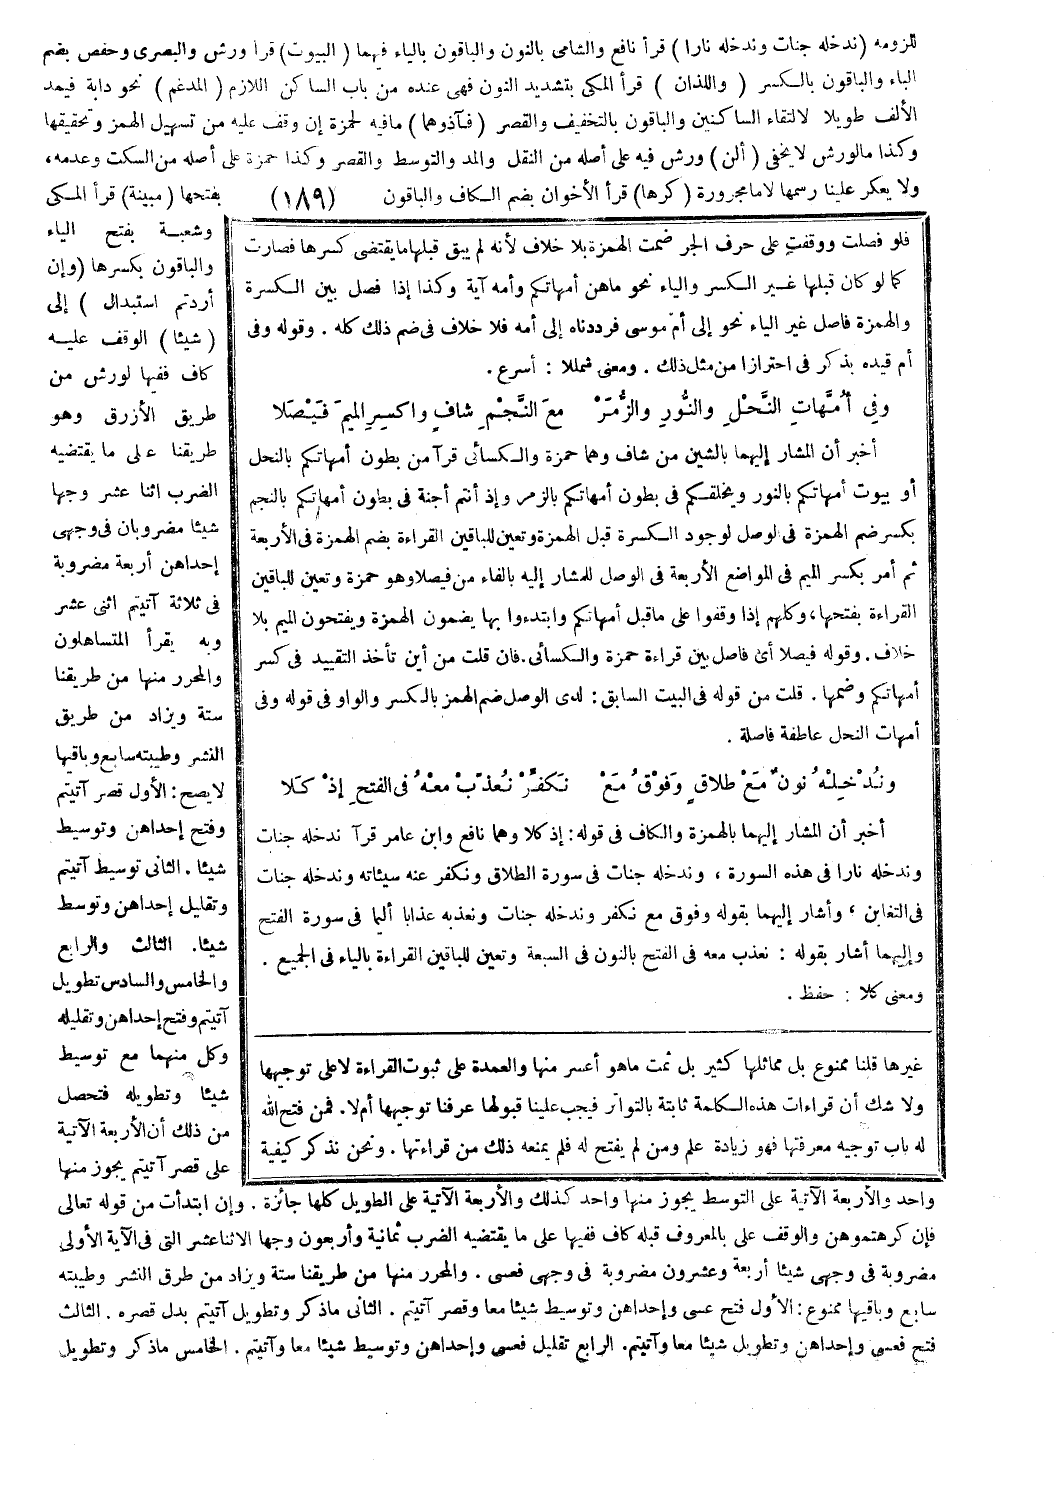 للزومه (ندخله جنات وندخله نارا) قرأ نافع والشامى بالنون والباقون بالياء فيهما (البيوت) قرأ ورش والبصرى وحفص بضم
الباء والباقون بالكسر (واللذان) قرأ المكى بتشديد النون فهى عنده من باب الساكن اللازم (المدغم) نحو دابة فيمد
الألف طويلا لالتقاء الساكنين والباقون بالتخفيف والقصر (فآذوهما) مافيه لحمزة إن وقف عليه من تسهيل الهمز وتحقيقها
وكذا مالورش لايخفى (ألن) ورش فيه على أصله من النقل والمد والتوسط والقصر وكذا حمزة على أصله من السكت وعدمه،
ولا يعكر علينا رسمها لامامجرورة (كرها) قرأ الأخوان بضم الكاف والباقون (١٨٩) بفتحها (مبينة) قرأ المكى
وشعبة بفتح الياء
والباقون بكسرها (وإن
أردتم استبدال) إلى
(شيئا) الوقف عليه
كاف ففيها لورش من
طريق الأزرق وهو
طريقنا على ما يقتضيه
الضرب اثنا عشر وجها
شيئا مضروبان فى وجهى
إحداهن أربعة مضروبة
فى ثلاثة آتيتم اثنى عشر
وبه يقرأ المتساهلون
والمحرر منها من طريقنا
ستة ويزاد من طريق
النشر وطيبته سابع وباقيها
لايصح: الأول قصر آتيتم
وفتح إحداهن وتوسيط
شيئا. الثانى توسيط آتيتم
وتقليل إحداهن وتوسط
شيئا. الثالث والرابع
والخامس والسادس تطويل
آتيتم وفتح إحداهن وتقليله
وكل منهما مع توسيط
شيئا وتطويله فتحصل
من ذلك أن الأربعة الآتية
على قصر آتيتم يجوز منها
فلو فصلت ووقفت على حرف الجر ضمت الهمزة بلا خلاف لأنه لم يبق قبلها ما يقتضى كسرها فصارت
كما لو كان قبلها غير الكسر والياء نحو ماهن أمهاتكم وأمه آية وكذا إذا فصل بين الكسرة
والهمزة فاصل غير الياء نحو إلى أم موسى فرددناه إلى أمه فلا خلاف فى ضم ذلك كله . وقوله وفى
أم قيده بذكر فى احترازا من مثل ذلك . ومعنى شمللا : أسرع .
وفي أمهات النحل والنور والزمر مع النجم شاف واكسر الميم فيصلا
أخبر أن المشار إليهما بالشين من شاف وهما حمزة والكسائى قرآ من بطون أمهاتكم بالنحل
أو بيوت أمهاتكم بالنور ويخلقكم فى بطون أمهاتكم بالزمر وإذ أنتم أجنة فى بطون أمهاتكم بالنجم
بكسر ضم الهمزة فى الوصل لوجود الكسرة قبل الهمزة وتعين للباقين القراءة بضم الهمزة فى الأربعة
ثم أمر بكسر الميم فى المواضع الأربعة فى الوصل للمشار إليه بالفاء من فيصلا وهو حمزة وتعين للباقين
القراءة بفتحها، وكلهم إذا وقفوا على ماقبل أمهاتكم وابتدءوا بها يضمون الهمزة ويفتحون الميم بلا
خلاف. وقوله فيصلا أى فاصل بين قراءة حمزة والكسائى. فان قلت من أين تأخذ التقييد فى كسر
أمهاتكم وضمها . قلت من قوله فى البيت السابق : لدى الوصل ضم الهمز بالكسر والواو فى قوله وفى
أمهات النحل عاطفة فاصلة .
وندخله نون مع طلاق وفوق مع نكفر نعذب معه فى الفتح إذ كلا
أخبر أن المشار إليهما بالهمزة والكاف فى قوله: إذ كلا وهما نافع وابن عامر قرآ ندخله جنات
وندخله نارا فى هذه السورة ، وندخله جنات فى سورة الطلاق ونكفر عنه سيئاته وندخله جنات
فى التغابن ، وأشار إليهما بقوله وفوق مع نكفر وندخله جنات ونعذبه عذابا أليما فى سورة الفتح
وإليهما أشار بقوله : نعذب معه فى الفتح بالنون فى السبعة وتعين للباقين القراءة بالياء فى الجميع .
ومعنى كلا : حفظ .
غيرها قلنا ممنوع بل مماثلها كثير بل ثمت ماهو أعسر منها والعمدة على ثبوت القراءة لا على توجيهها
ولا شك أن قراءات هذه الكلمة ثابتة بالتواتر فيجب علينا قبولها عرفنا توجيهها أم لا. فمن فتح الله
له باب توجيه معرفتها فهو زيادة علم ومن لم يفتح له فلم يمنعه ذلك من قراءتها . ونحن نذكر كيفية
واحد والأربعة الآتية على التوسط يجوز منها واحد كذلك والأربعة الآتية على الطويل كلها جائزة . وإن ابتدأت من قوله تعالى
فإن كرهتموهن والوقف على بالمعروف قبله كاف ففيها على ما يقتضيه الضرب ثمانية وأربعون وجها الاثنا عشر التى فى الآية الأولى
مضروبة فى وجهى شيئا أربعة وعشرون مضروبة فى وجهى فعسى . والمحرر منها من طريقنا ستة ويزاد من طرق النشر وطيبته
سابع وباقيها ممنوع : الأول فتح عسى وإحداهن وتوسيط شيئا معا وقصر آتيتم . الثانى ماذكر وتطويل آتيتم بدل قصره . الثالث
فتح فعسى وإحداهن وتطويل شيئا معا وآتيتم. الرابع تقليل فعسى وإحداهن وتوسيط شيئا معا وآتيتم . الخامس ماذكر وتطويل